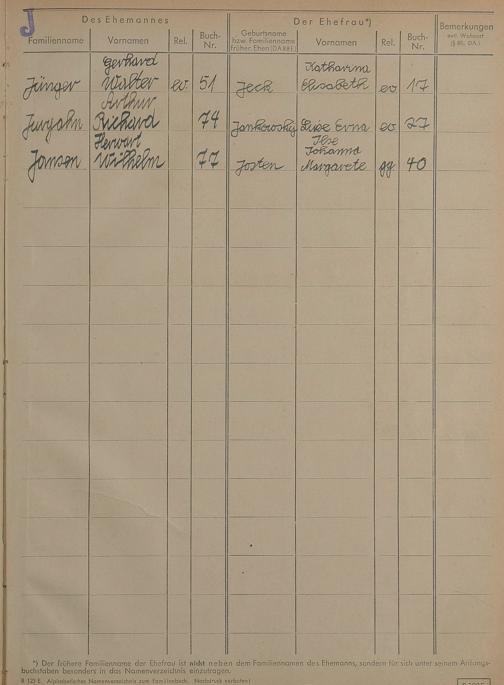 J
Des Ehemannes Der Ehefrau*) Bemerkungen
Familienname Vornamen Rel. Buch-Nr. Geburtsname bzw. Familienname früher. Ehen (DA 88 E) Vornamen Rel. Buch-Nr. evtl. Wohnort (§ 80, DA.)
Gerhard Katharina
Jünger Walter ev 51 Jeck Elisabeth ev 17
Arthur
Jurjahn Richard 74 Jankowsky Luise Erna ev 27
Herwart Ilse
Johanna
Jansen Wilhelm 77 Josten Margarete gg 40
*) Der frühere Familienname der Ehefrau ist nicht neben dem Familiennamen des Ehemanns, sondern für sich unter seinem Anfangs-
buchstaben besonders in das Namenverzeichnis einzutragen.
B 123 E. Alphabetisches Namenverzeichnis zum Familienbuch. Nachdruck verboten!